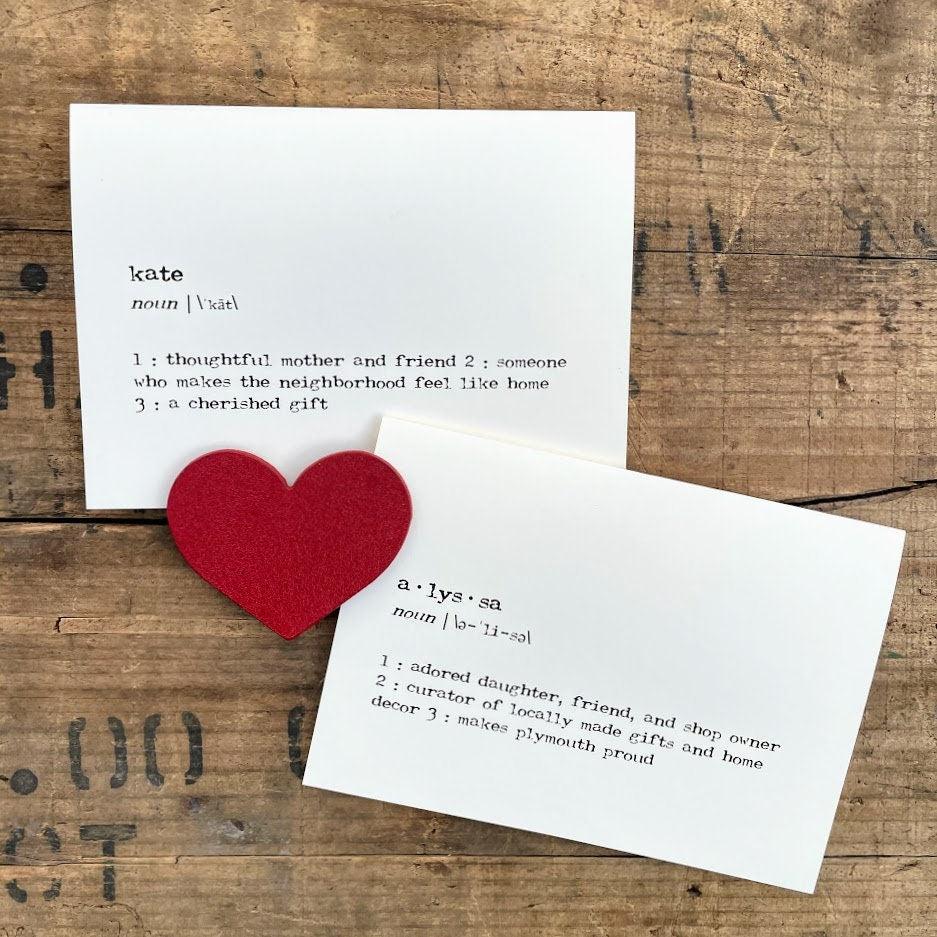 kate
noun | \ˈkāt\
1 : thoughtful mother and friend 2 : someone
who makes the neighborhood feel like home
3 : a cherished gift
a·lys·sa
noun | \ə-ˈli-sə\
1 : adored daughter, friend, and shop owner
2 : curator of locally made gifts and home
decor 3 : makes plymouth proud